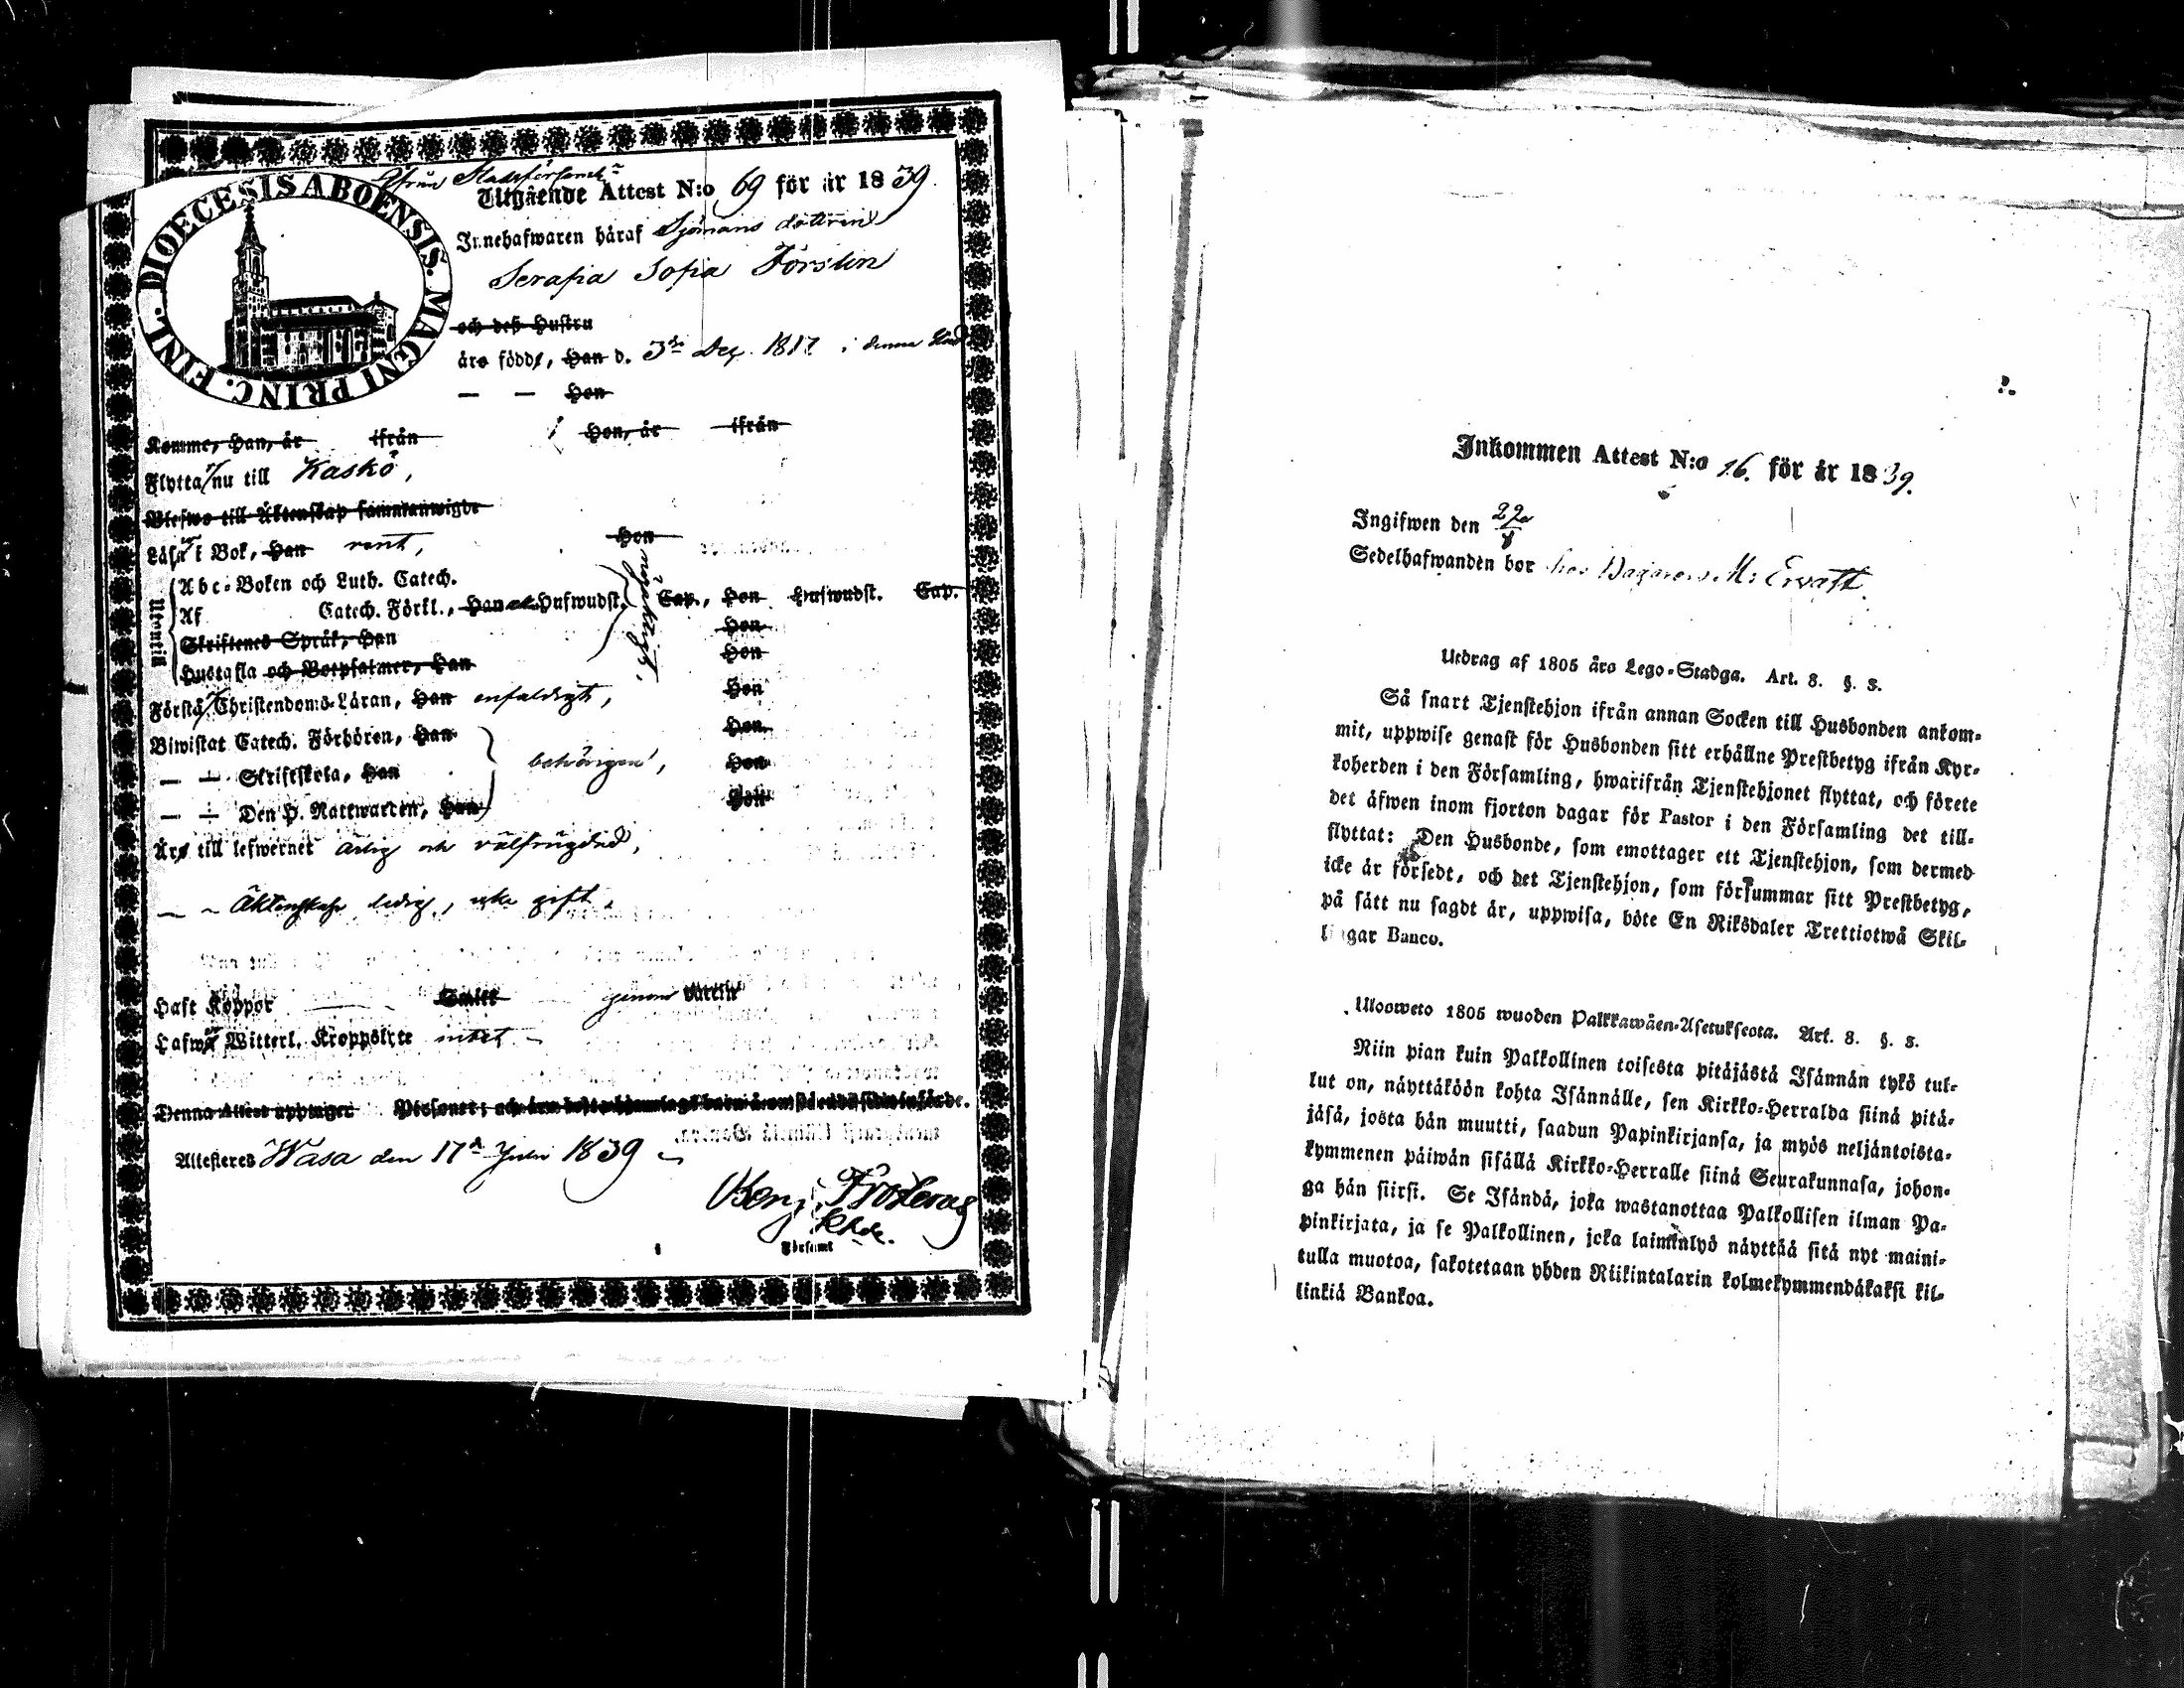 DIOECESIS ABOENSIS. MAGNI PRINC. FINL.
ifrån Stadsförsaml.
Utgående Attest N:o 69 för år 1839.
Innehafwaren håraf Sjömans dottren
Serafia Sofia Forslin
och deß Hustru
äro födde, Han d. 3die Dec. 1817 i denna Stad
— — Hon
Komme, Han, år ifrån Hon, år ifrån
Flytta nu till Kaskö,
Blefwo till Äktenskap sammanwigde
Läsa i Bok, Han rent, Hon
Utontill
Abc-Boken och Luth. Catech.
Af Catech. Förkl., Han Hufwudst. Cap., Hon Hufwudst. Cap.
Skriftenes Språk, Han Hon
Hustafla och Botpsalmer, Han Hon
Förstå Christendoms-Läran, Han enfaldigt, Hon
Biwistat Catech. Förhören, Han Hon
— — Skriftskola, Han behörigen, Hon
— — Den H. Nattwarden, Han Hon
Äro till lefwernet ärlig och välfrägdad,
— — Äktenskap ledig, icke gift.
Haft Koppor Smitt genom Vaccin
Hafwa Witterl. Kroppslyte intet
Denna Attest upptager Personer;
Attesteras Wasa den 17de Julii 1839
Benj. Frosterus
Khde.
Församl
Inkommen Attest N:o 16. för år 1839.
Ingifwen den 22/8
Sedelhafwanden bor hos M: Ervast
Utdrag af 1805 års Lego-Stadga. Art. 8. §. 3.
Så snart Tjenstehjon ifrån annan Socken till Husbonden ankom-
mit, uppwise genast för Husbonden sitt erhållne Prestbetyg ifrån Kyr-
koherden i den Församling, hwarifrån Tjenstehjonet flyttat, och förete
det äfwen inom fjorton dagar för Pastor i den Församling det till-
flyttat: Den Husbonde, som emottager ett Tjenstehjon, som dermed
icke är försedt, och det Tjenstehjon, som försummar sitt Prestbetyg,
på sätt nu sagdt är, uppwisa, böte En Riksdaler Trettiotwå Skil-
lingar Banco.
Ulosweto 1805 wuoden Palkkawäen-Asetuksesta. Art. 8. §. 3.
Niin pian kuin Palkollinen toisesta pitäjästä Isännän tykö tul-
lut on, näyttäköön kohta Isännälle, sen Kirkko-Herralda siinä pitä-
jäsä, josta hän muutti, saadun Papinkirjansa, ja myös neljäntoista-
kymmenen päiwän sisällä Kirkko-Herralle siinä Seurakunnasa, johon-
ga hän siirsi. Se Isändä, joka wastanottaa Palkollisen ilman Pa-
pinkirjata, ja se Palkollinen, joka laiminlyö näyttää sitä nyt maini-
tulla muotoa, sakotetaan yhden Riikintalarin kolmekymmendäkaksi kil-
linkiä Bankoa.